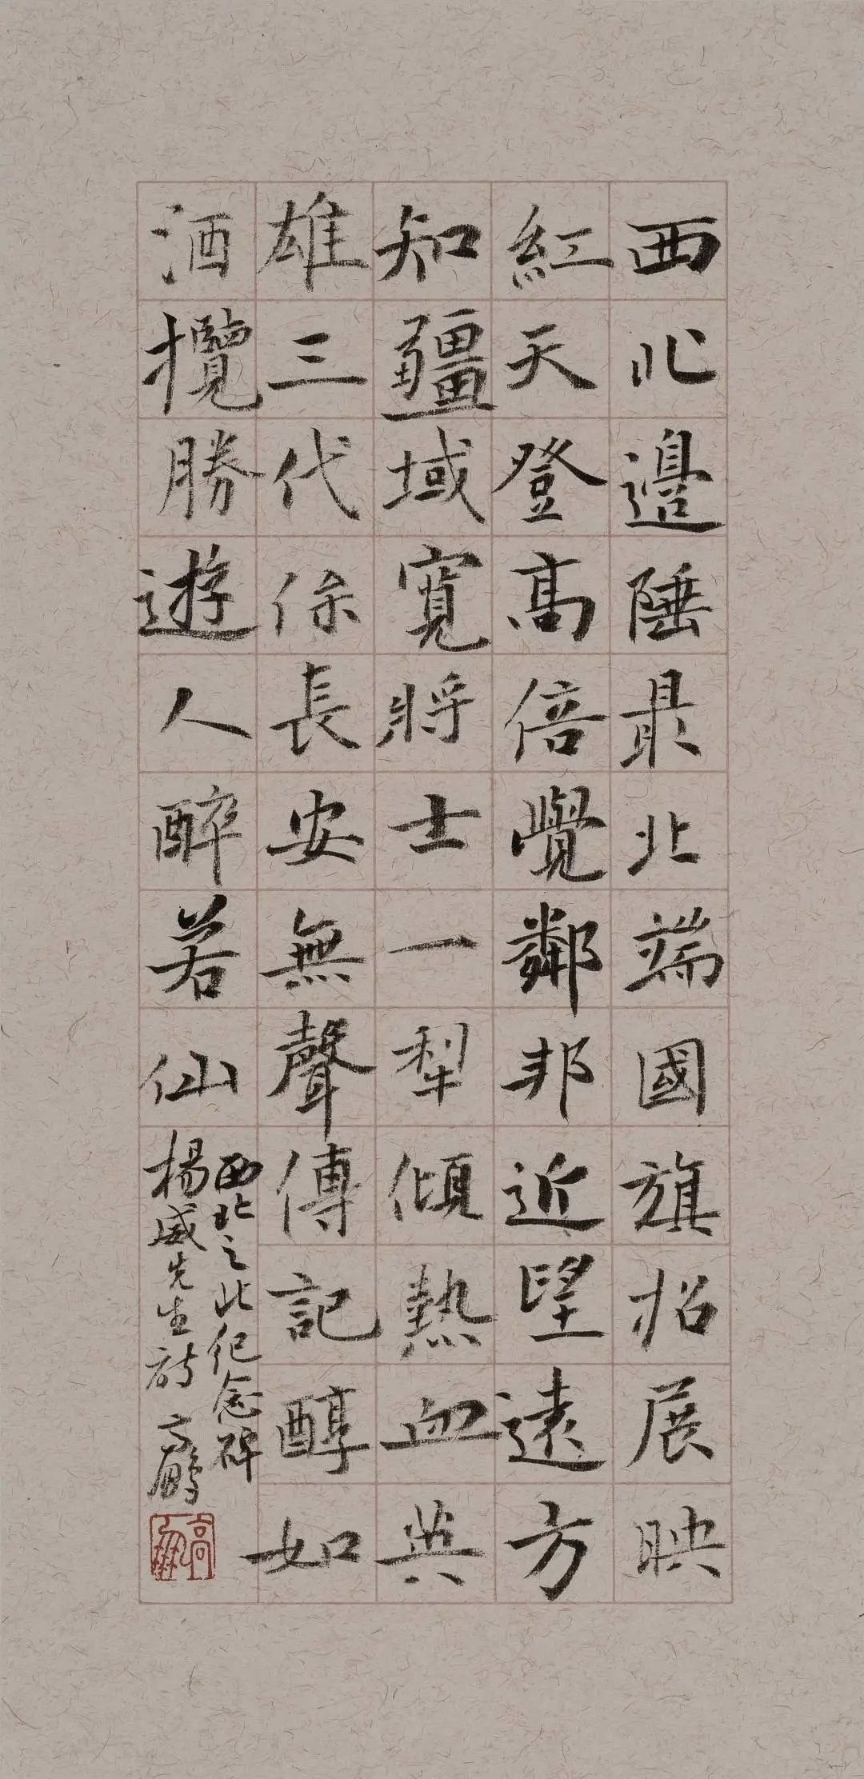 西北邊陲最北端國旗招展映
紅天登高倍覺鄰邦近望遠方
知疆域寬將士一犁傾熱血英
雄三代係長安無聲傳記醇如
酒攬勝遊人醉若仙
西北之北纪念碑
楊威先生詩